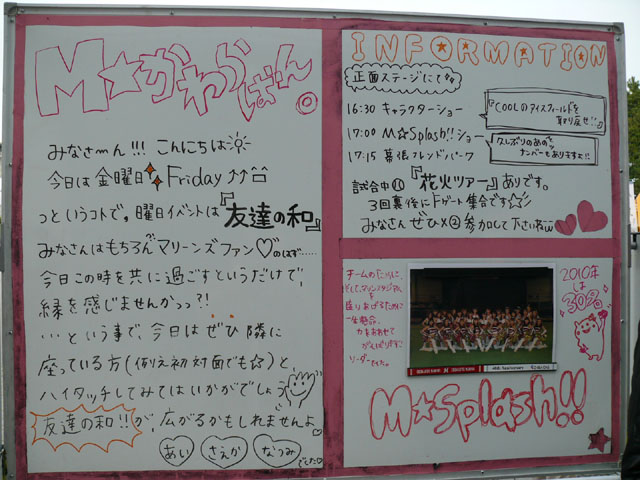 M☆かわらばん。
みなさーん!!! こんにちは
今日は金曜日 Friday↑↑
っというコトで。曜日イベントは『友達の和』
みなさんはもちろんマリーンズファン♡のはず……
今日この時を共に過ごすというだけで、
縁を感じませんかっっ?!
…という事で、今日はぜひ隣に
座っている方(例え初対面でも☆)と、
ハイタッチしてみてはいかがでしょう
友達の和!!が、広がるかもしれませんよ
あい さえか なつみ
でした
INFORMATION
正面ステージにて
16:30 キャラクターショー
『COOLのアイスフィールドを
取り戻せ!!』
17:00 M☆Splash!!ショー
久しぶりのあの
ナンバーもありますよ!!
17:15 幕張フレンドパーク
試合中 『花火ツアー』ありです。
3回裏後にFゲート集合です☆
みなさん ぜひ×② 参加して下さいね
チームのために、
そして、マリンスタジアムを
盛りあげるために
一生懸命、
力をあわせて
がんばります
リーダーでした。
2010年
は
30人。
M☆Splash!!